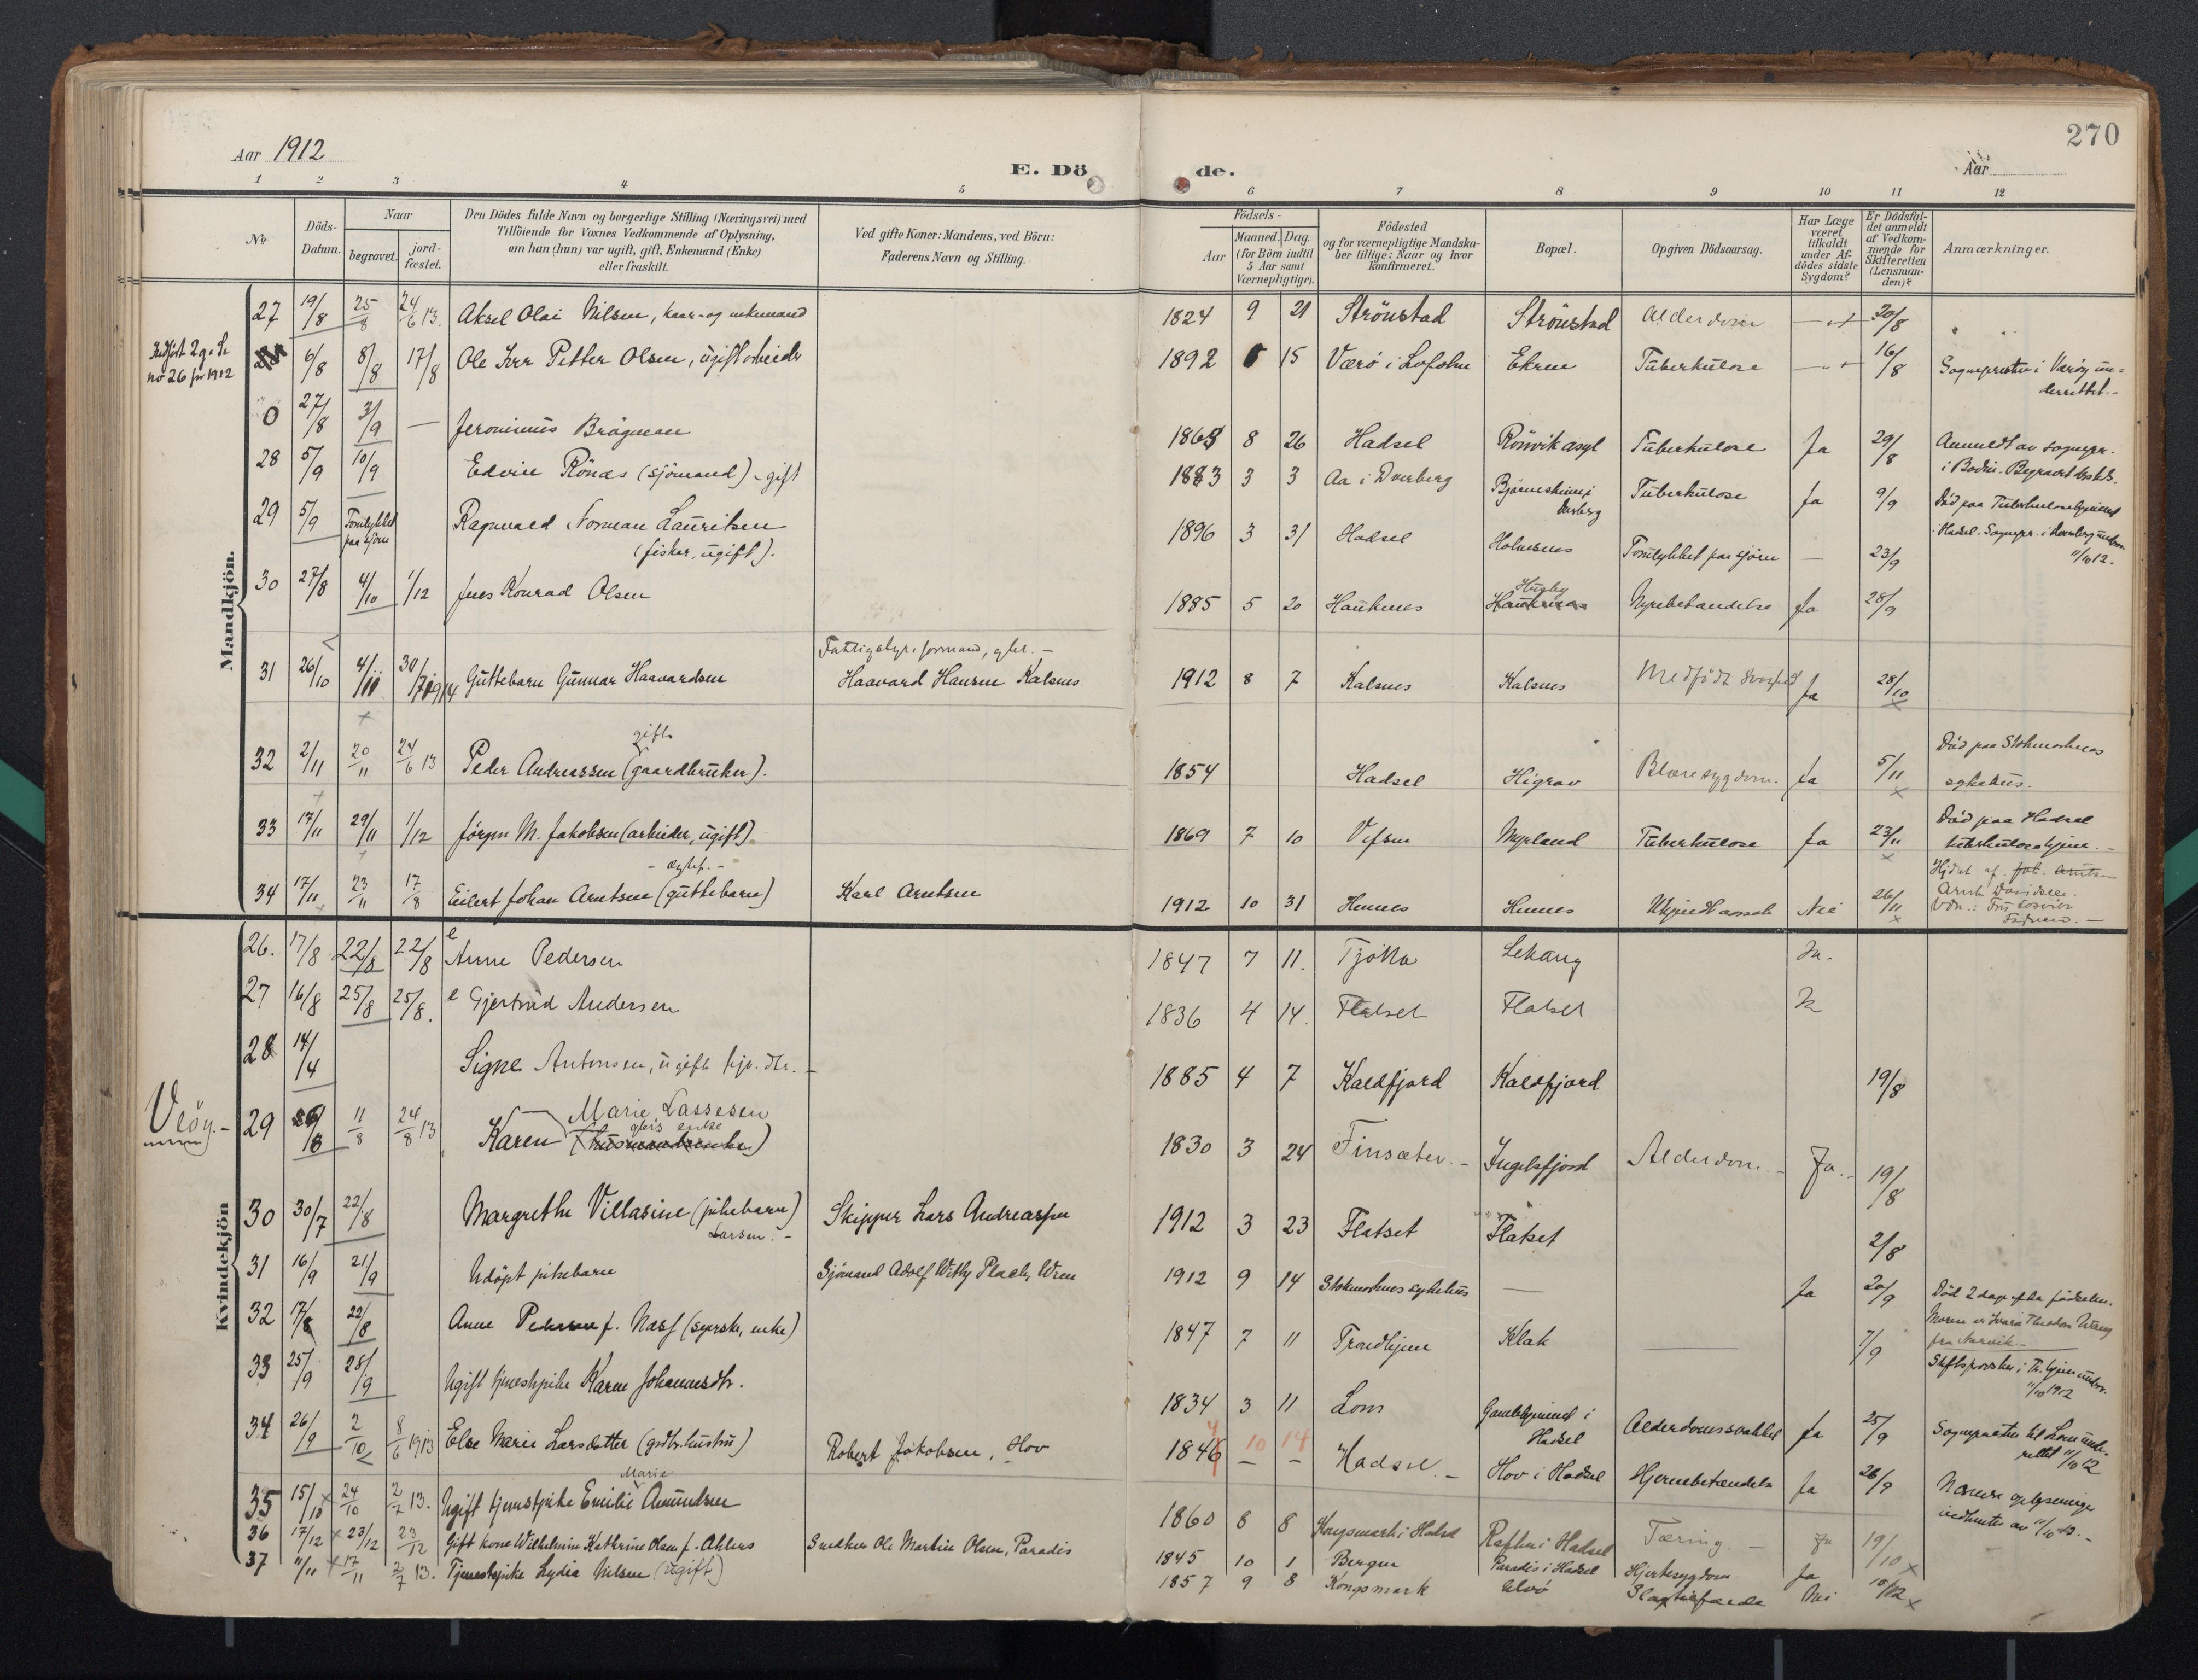 270
Aar 1912
E. Dö
de.
Aar
1 2 3 4 5 6 7 8 9 10 11 12
No.
Döds-
Datum.
Naar
begravet.
jord-
fæstet.
Den Dödes fulde Navn og borgerlige Stilling (Næringsvei) med
Tilföiende for Voxnes Vedkommende af Oplysning,
om han (hun) var ugift, gift, Enkemand (Enke)
eller fraskilt.
Ved gifte Koner: Mandens, ved Börn:
Faderens Navn og Stilling.
Födsels-
Aar
Maaned. Dag.
(for Börn indtil
5 Aar samt
Værnepligtige).
Födested
og for værnepligtige Mandska-
ber tillige: Naar og hvor
konfirmeret.
Bopæl.
Opgiven Dödsaarsag.
Har Læge
været
tilkaldt
under Af-
dödes sidste
Sygdom?
Er Dödsfal-
det anmeldt
af Vedkom-
mende for
Skifteretten
(Lensman-
den)?
Anmærkninger.
Mandkjön.
27 19/8 25/8 24/6 13. Aksel Olai Nilsen, kaar- og enkemand 1824 9 21 Strönstad Strönstad Alderdom 20/8
no 26 for 1912
6/8 8/8 17/8 Ole Petter Olsen, ugift arbeider 1892 15 Værö i Lofoten Ekren Tuberkulose 16/8 Sognepresten i Værøy un-
derrettet.-
0 27/8 3/9 — Jeronimus Brögman 1868 8 26 Hadsel Rönvik asyl Tuberkulose Ja 29/8 Anmeldt av sognepr.
i Bodin. Begravet
28 5/9 10/9 Edvin Rönæs (sjömand) - gift 1883 3 3 Aa i Dverberg Bjørneskinn i
Tuberkulose Ja 9/9 Död paa Tuberkulosehjemmet
i Hadsel. Sognepr. i
11/10 12.
29 5/9 Omkommet
paa sjöen
Ragnvald Norman Lauritsen
(fisker, ugift).
1896 3 31 Hadsel Holmsnes paa sjöen — 23/9
30 27/8 4/10 1/12 Jens Konrad Olsen 1885 5 20 Haukenes Husby
Nyrebetændelse Ja 28/9
Fattigstyreformand, gbr. -
31 26/10 4/11 30/7 1914 Guttebarn Gunnar Haavardsen Haavard Hansen Kalsnes 1912 8 7 Kalsnes Kalsnes Medfödt Ja 28/10
gift
32 2/11 20/11 24/6 13 Peder Andreassen (gaardbruker). 1854 Hadsel Higrav Blæresygdom. Ja 5/11 Död paa Stokmarknes
sykehus.
33 17/11 29/11 1/12 Jörgen M. Jakobsen (arbeider, ugift). 1869 7 10 Vefsen Myrland Tuberkulose Ja 23/11 Död paa Hadsel
tuberkulosehjem.-
- ægtef. -
34 17/11 23/11 17/8 Eilert Johan Arntsen (guttebarn) Karl Arntsen 1912 10 31 Hennes Hennes Nei 26/11
Arnt Davidsen.
Kvindekjön
26. 17/8 22/8 22/8 e Anne Pedersen 1847 7 11. Tjötta Lekang Ja.
27 16/8 25/8 25/8. e Gjertrud Andersen 1836 4 14. Flatset Flatset
28 14/4 Signe Antonsen, ugift 1885 4 7 Kaldfjord Kaldfjord 19/8
29 11/8 24/8 13 Karen Marie Lassesen
gbrs enke
(husmandsenke)
1830 3 24 Finsæter.- Ingelsfjord Alderdom.- Ja.- 19/8
30 30/7 22/8 Margrethe Villasine (pikebarn)
Larsen.-
Skipper Lars Andreassen 1912 3 23 Flatset Flatset 2/8
31 16/9 21/9 Udöpt pikebarn Sjömand Adolf 1912 9 14 Stokmarknes sykehus — Ja 20/9 Död 2 dage efter födselen.
32 17/8 22/8 Anne Pedersen f. Næss (syerske, enke) 1847 7 11 Trondhjem Klak — 7/9
33 25/9 28/9 Ugift tjenestepike Karen Johannesdtr. 1834 3 11 Lom Gamlehjemmet i
Hadsel
Alderdomssvakhet Ja 25/9 Sognepresten til Lom unde-
rettet 11/10 12
34 26/9 2/10 8/6 1913 Else Marie Larsdatter (gdbr. hustru) Robert Jakobsen, Hov 1846 10 14 Hadsel.- Hov i Hadsel Hjernebetændelse Ja 26/9
Marie
35 15/10 24/10 2/7 13. Ugift tjenestpike Emilie Amundsen 1860 8 8 Kongsmark i Hadsel Raften i Hadsel Tæring.- Ja 19/10
36 17/12 23/12 23/12 Gift kone Wilhelmine Kathrine Olsen f. Ahlers Snedker Ole Martin Olsen, Paradis 1845 10 1 Bergen Paradis i Hadsel Hjertesygdom Ja
37 11/11 17/11 2/7 13. Tjenestepike Lydia Nilsen (ugift) 1857 9 8 Kongsmark Ulvö Slagtilfælde Nei